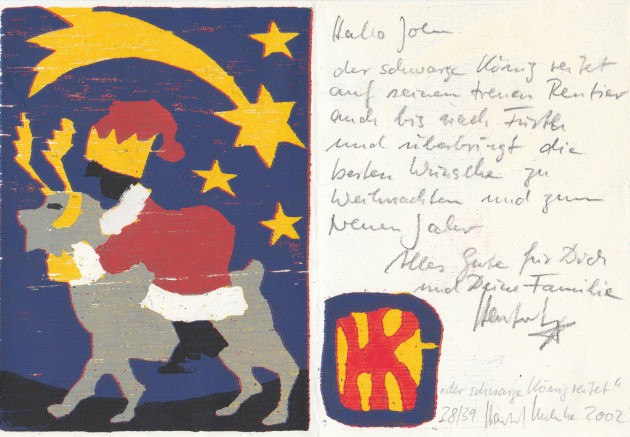 Hallo John
der schwarze König reitet
auf seinem treuen Rentier
auch bis nach Fürth
und überbringt die
besten Wünsche zu
Weihnachten und zum
Neuen Jahr
Alles Gute für Dich
und Deine Familie
"der schwarze König reitet"
28/39 2002